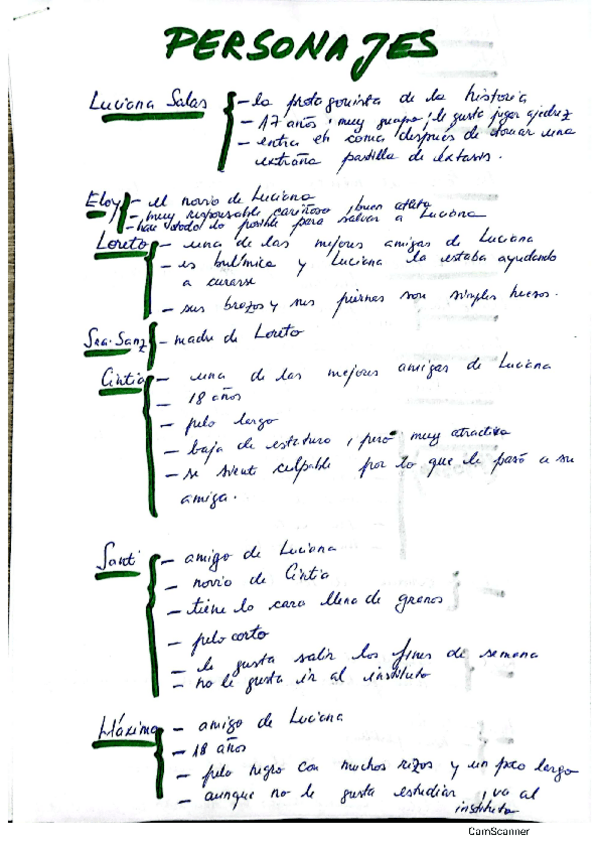 PERSONAJES
Luciana Salas - la protagonista de la historia
- 17 años, muy guapa, le gusta jugar ajedrez
- entra en coma después de tomar una
extraña pastilla de éxtasis.
Eloy - el novio de Luciana
- muy responsable, cariñoso, buen atleta
- hace todo lo posible para salvar a Luciana
Loreto - una de las mejores amigas de Luciana
- es bulímica y Luciana la estaba ayudando
a curarse
- sus brazos y sus piernas son simples huesos.
Sra. Sanz - madre de Loreto
Cintia - una de las mejores amigas de Luciana
- 18 años
- pelo largo
- baja de estatura, pero muy atractiva
- se siente culpable por lo que le pasó a su
amiga.
Santi - amigo de Luciana
- novio de Cintia
- tiene la cara llena de granos
- pelo corto
- le gusta salir los fines de semana
- no le gusta ir al instituto
Máximo - amigo de Luciana
- 18 años
- pelo negro con muchos rizos y un poco largo
- aunque no le gusta estudiar, va al
instituto
CamScanner